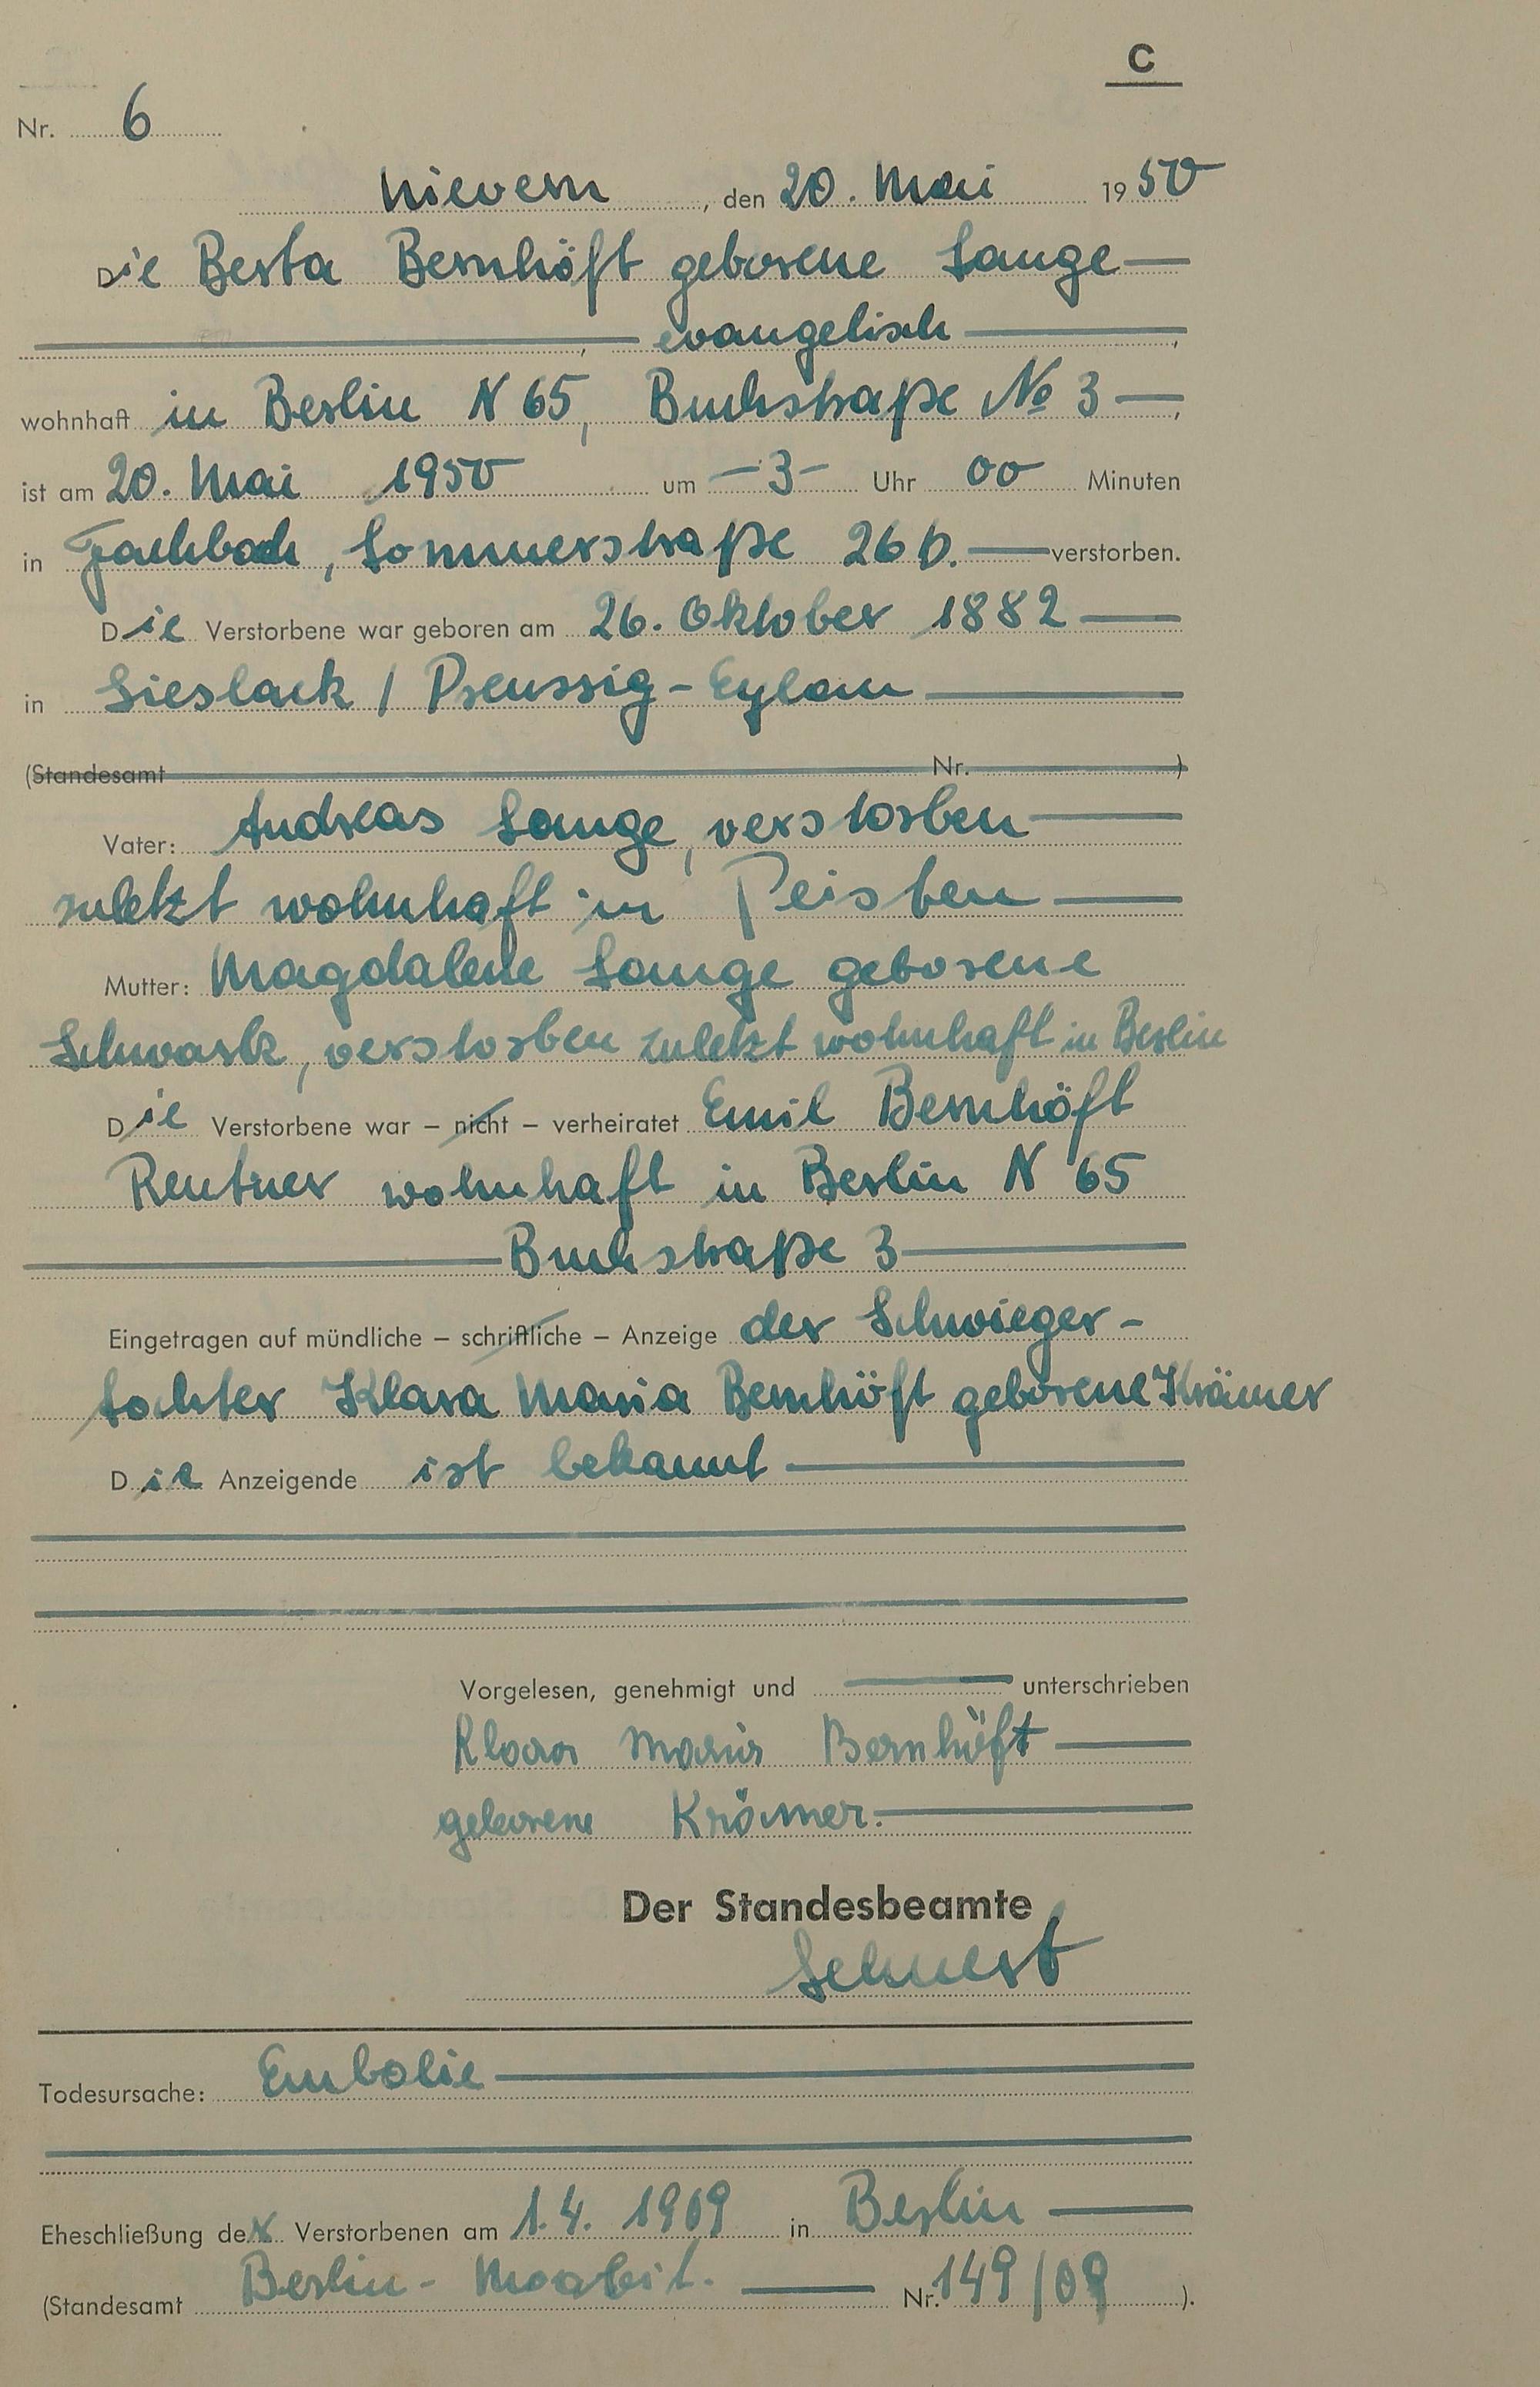 C
Nr. 6
Nievern, den 20. Mai 1950
Die Berta Bernhöft geborene Lange
evangelisch,
wohnhaft in Berlin N 65, Buchstraße No 3,
ist am 20. Mai 1950 um -3- Uhr 00 Minuten
in Fachbach, Sommerstraße 26 b. verstorben.
Die Verstorbene war geboren am 26. Oktober 1882
in Lieslack / Preussig-Eylau
(Standesamt Nr. )
Vater: Andreas Lange, verstorben
zuletzt wohnhaft in Peisten
Mutter: Magdalene Lange geborene
Schwartz, verstorben zuletzt wohnhaft in Berlin
Die Verstorbene war – nicht – verheiratet Emil Bernhöft
Rentner wohnhaft in Berlin N 65
Buchstraße 3
Eingetragen auf mündliche – schriftliche – Anzeige der Schwieger-
tochter Klara Maria Bernhöft geborene Krämer
Die Anzeigende ist bekannt
Vorgelesen, genehmigt und unterschrieben
Klara Maria Bernhöft
geborene Krämer.
Der Standesbeamte
Todesursache: Embolie
Eheschließung der Verstorbenen am 1.4. 1909 in Berlin
(Standesamt Berlin-Moabit. Nr. 149/09 ).